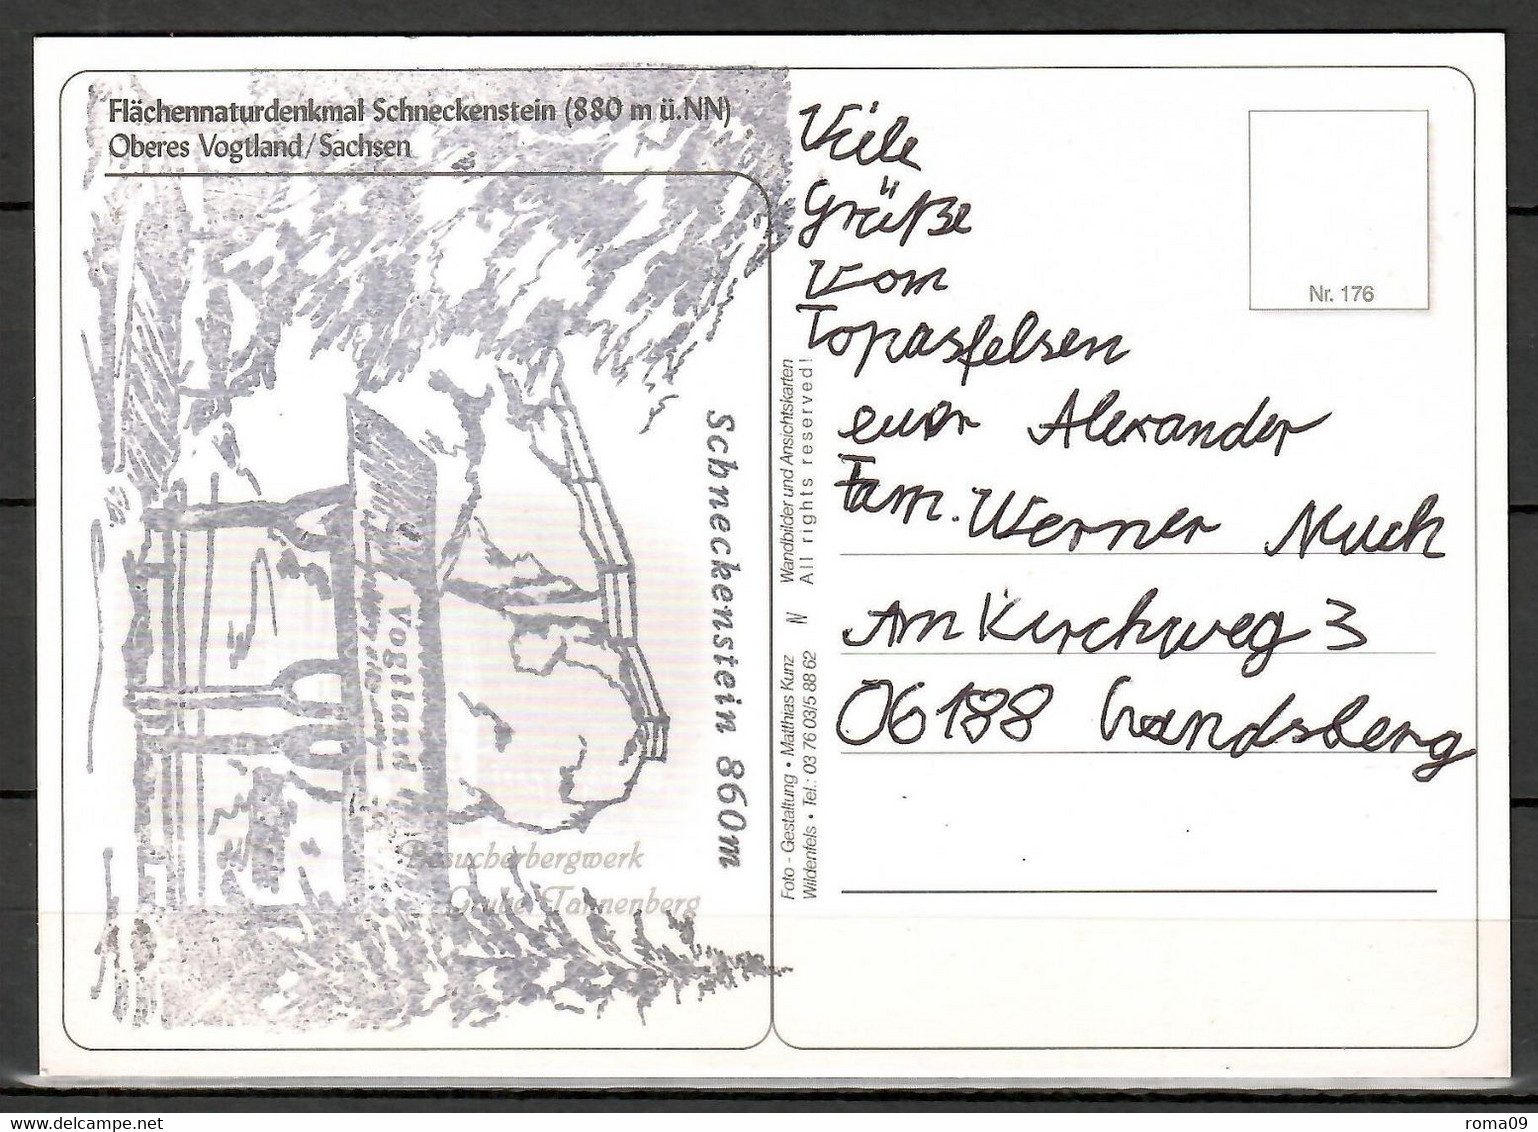 Flächennaturdenkmal Schneckenstein (880 m ü.NN)
Oberes Vogtland/Sachsen
Schneckenstein 860m
Vogtland
Besucherbergwerk
Grube Tannenberg
Foto - Gestaltung • Matthias Kunz N Wandbilder und Ansichtskarten
Wildenfels • Tel.: 03 76 03/5 88 62 All rights reserved!
Nr. 176
Viele
Grüße
vom
Topasfelsen
euer Alexander
Fam. Werner Much
Am Kirchweg 3
06188 Landsberg
www.delcampe.net
roma09